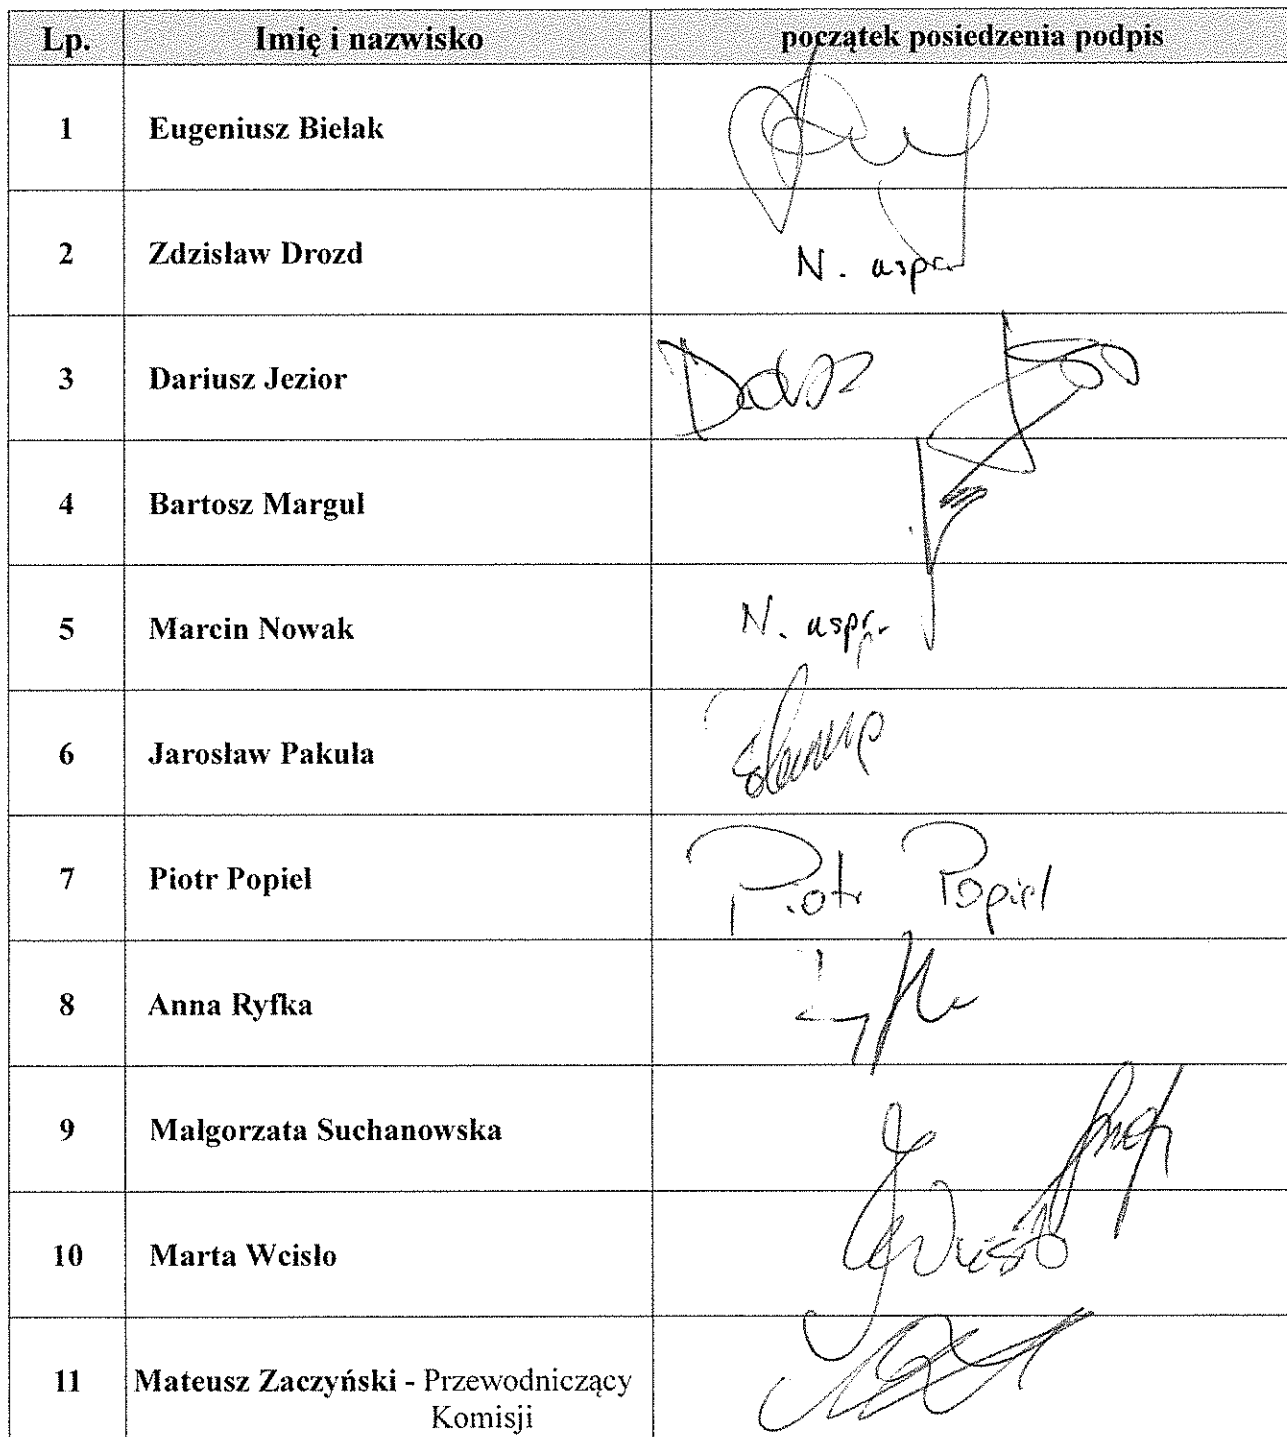 Lp. Imię i nazwisko początek posiedzenia podpis
1 Eugeniusz Bielak
2 Zdzisław Drozd N. uspr.
3 Dariusz Jezior
4 Bartosz Margul
5 Marcin Nowak N. uspr.
6 Jarosław Pakuła
7 Piotr Popiel Piotr Popiel
8 Anna Ryfka
9 Małgorzata Suchanowska
10 Marta Wcisło
11 Mateusz Zaczyński - Przewodniczący
Komisji